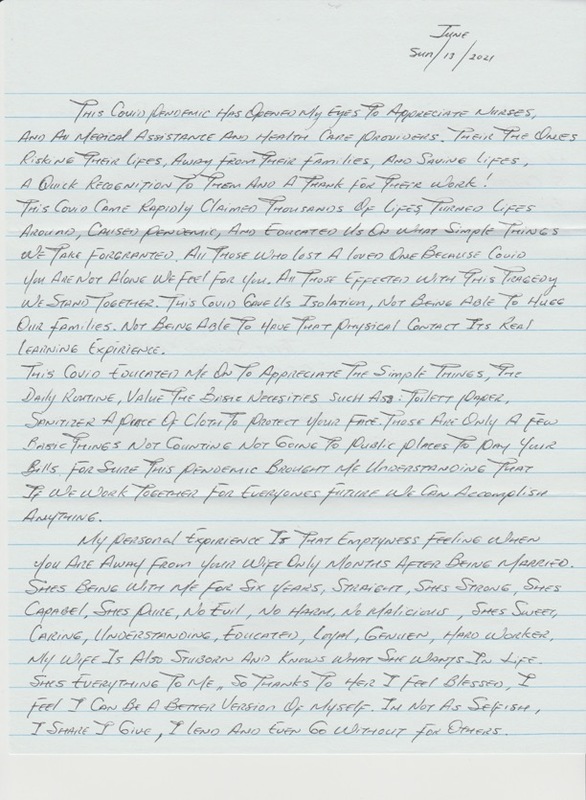 June
Sun/13/2021
This Covid pendemic has opened my eyes to appreciate nurses,
and all medical assistance and health care providers. Their the ones
risking their lifes, away from their families, and saving lifes,
a quick recognition to them and a thank for their work!
This Covid came rapidly claimed thousands of lifes turned lifes
around, caused pendemic, and educated us on what simple things
we take forgranted. All those who lost a loved one because Covid
you are not alone we feel for you. All those effected with this tragedy
we stand together. This Covid gave us isolation, not being able to hugg
our families. Not being able to have that physical contact its real
learning expirience.
This Covid educated me on to appreciate the simple things, the
daily routine, value the basic necesities such as: toilett paper,
sanitizer a piece of cloth to protect your face. Those are only a few
basic things not counting not going to public places to pay your
bills for sure this pendemic brought me understanding that
if we work together for everyones future we can accomplish
anything.
My personal expirience is that emptyness feeling when
you are away from your wife only months after being married.
Shes being with me for six years, straight, shes strong, shes
capabel, shes pure, no evil, no harm, no malicious, shes sweet,
caring, understanding, educated, loyal, genuien, hard worker,
my wife is also stuborn and knows what she wants in life.
Shes everything to me, so thanks to heir I feel blessed, I
feel I can be a better version of myself. Im not as selfish,
I share I give, I lend and even go without for others.